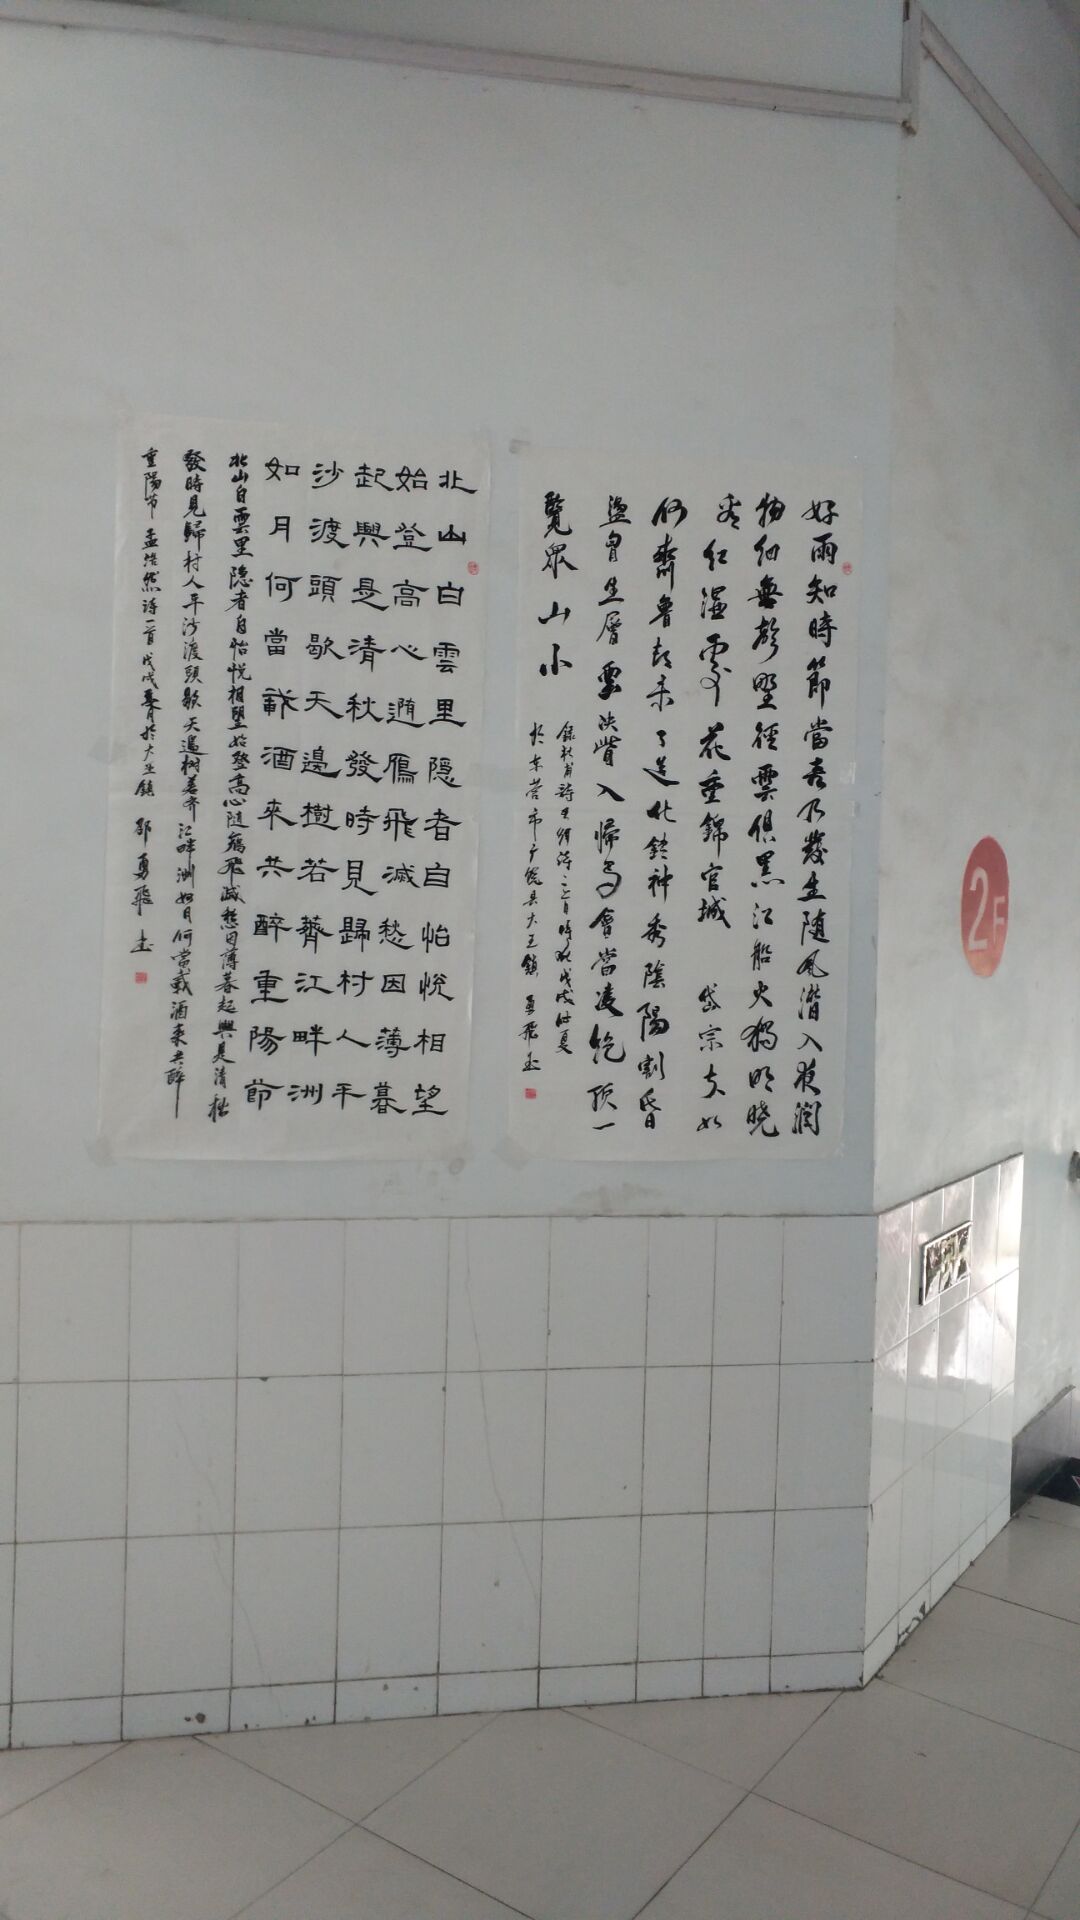 好雨知時節當春乃發生随风潛入夜润
物细無聲野徑雲俱黑江船火獨明晓
看红濕處花重錦官城 岱宗夫如
何齊魯青未了造化鍾神秀陰陽割昏
盪胷生層雲决眥入归鸟會當凌絶顶一
覽眾山小
於东营市广饶县大王鎮 勇飛书
北山白雲里隐者自怡悦相望
始登高心随鴈飛滅愁因薄暮
起興是清秋發時見歸村人平
沙渡頭歇天邊樹若薺江畔洲
如月何當載酒來共醉重陽節
北山白雲里隐者自怡悦相望始登高心随鴈飛滅愁因薄暮起興是清秋
發時見歸村人平沙渡頭歇天邊树若齐江畔洲如月何當載酒来共醉
重陽节 孟浩然诗一首 戊戌春月於大王鎮 邵勇飛书
2F